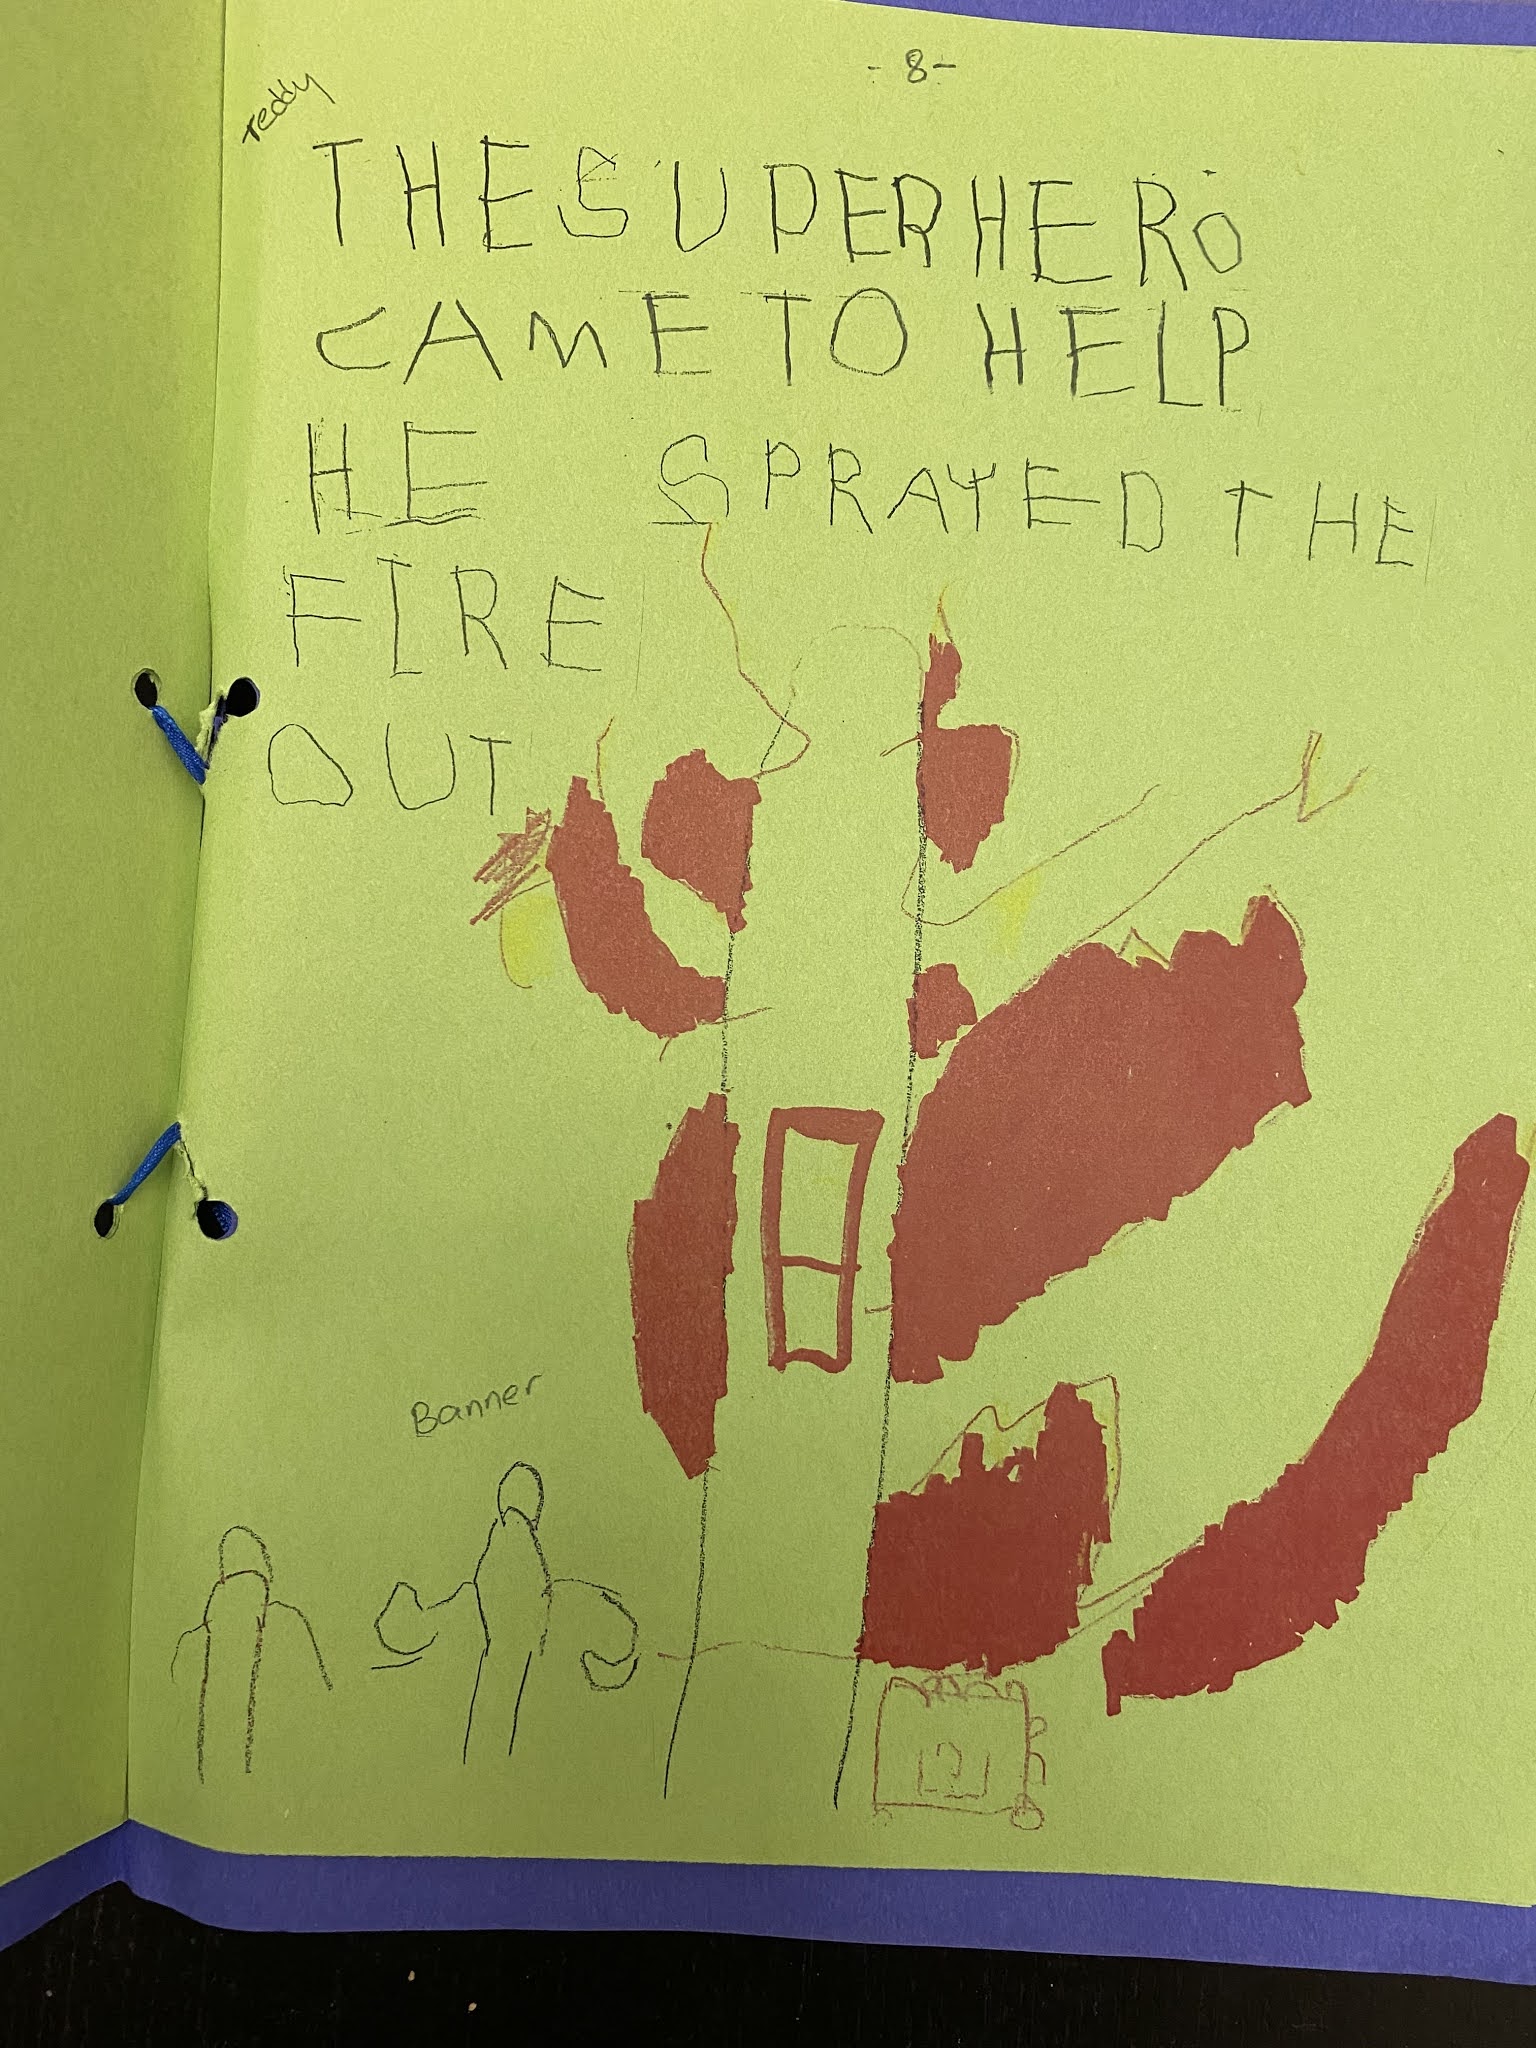 - 8 -
Teddy
THE SUPERHERO
CAME TO HELP
HE SPRAYED THE
FIRE
OUT
Banner